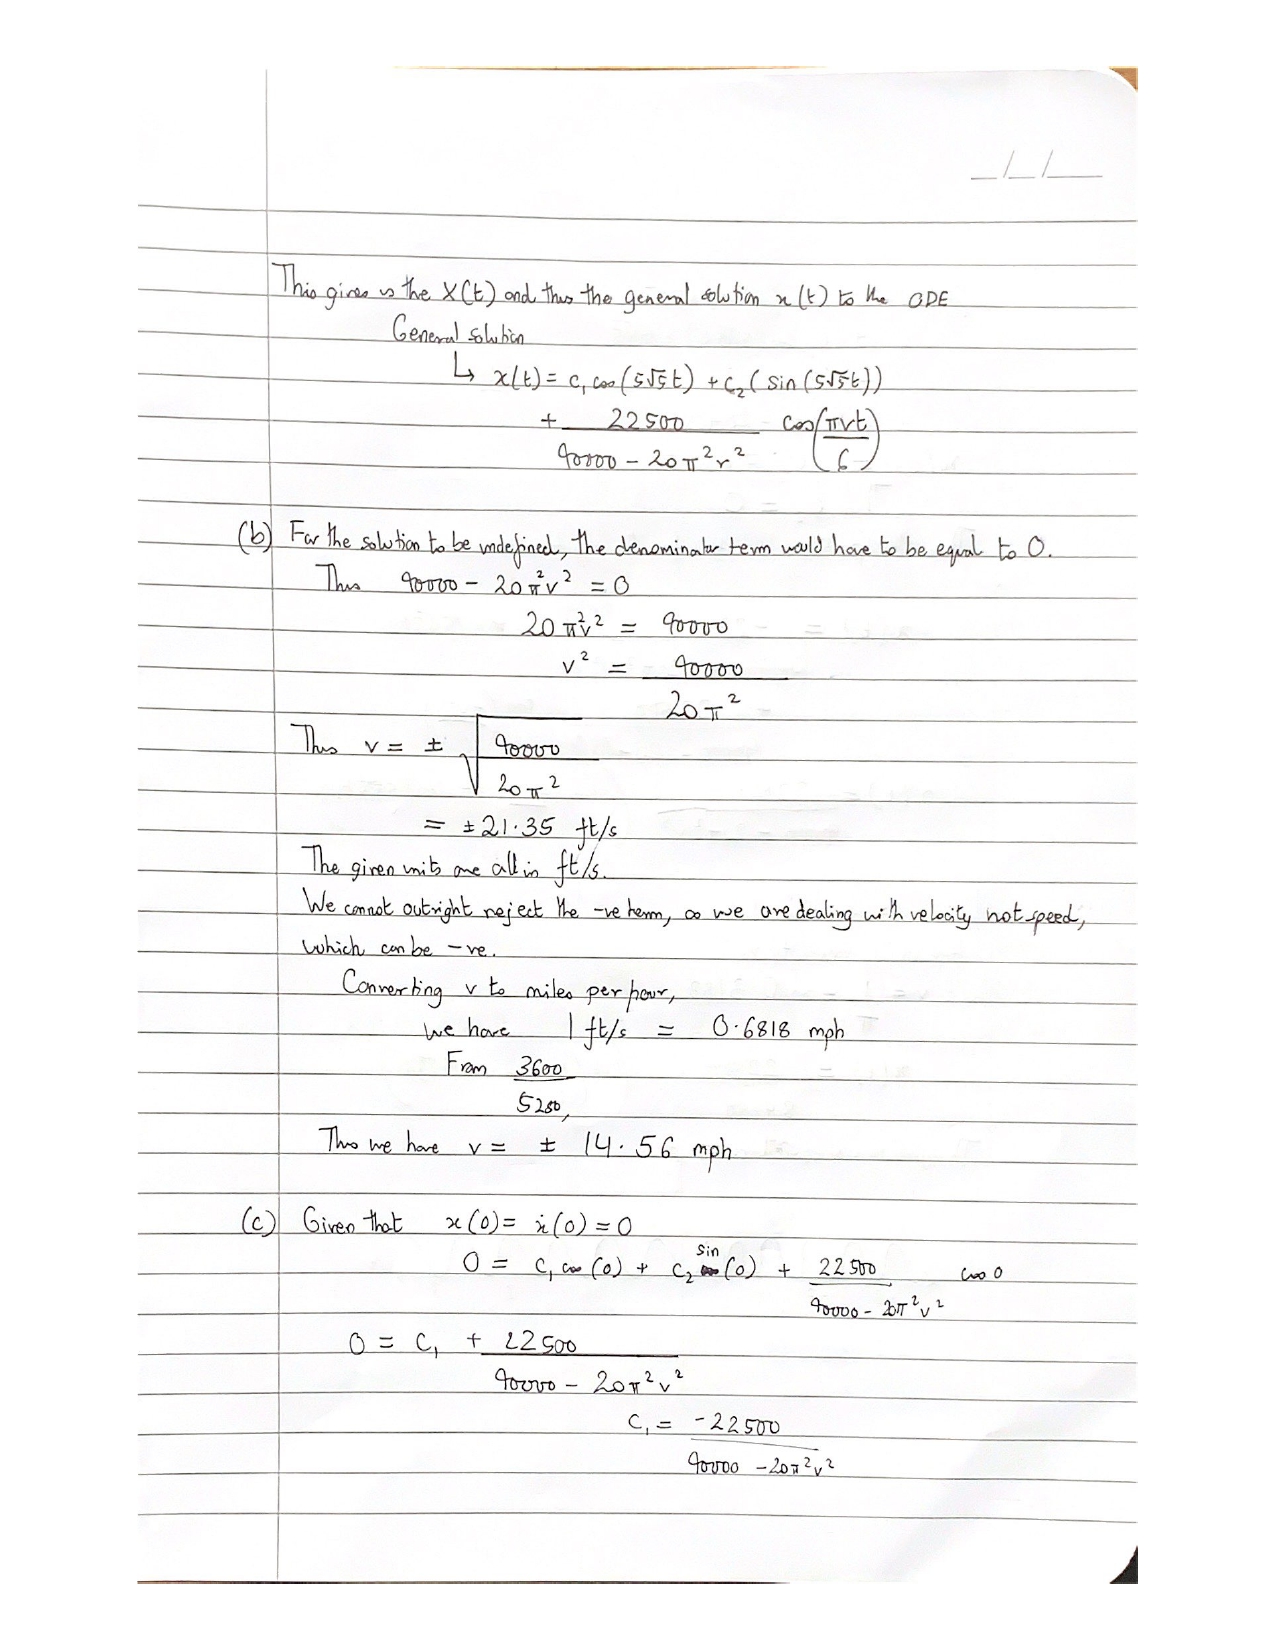 _/_/_
This gives us the X(t) and thus the general solution x(t) to the ODE
General solution
↳ x(t) = c₁ cos(5√5t) + c₂ (sin (5√5t))
+ 22500/(90000 - 20π²v²) cos(πvt/6)
(b) For the solution to be undefined, the denominator term would have to be equal to 0.
Thus 90000 - 20π²v² = 0
20π²v² = 90000
v² = 90000/(20π²)
Thus v = ± √(90000/(20π²))
= ±21.35 ft/s
The given units are all in ft/s.
We cannot outright reject the -ve term, as we are dealing with velocity not speed,
which can be -ve.
Converting v to miles per hour,
we have 1 ft/s = 0.6818 mph
From 3600/5280,
Thus we have v = ± 14.56 mph
(c) Given that x(0) = ẋ(0) = 0
0 = c₁ cos(0) + c₂ sin(0) + 22500/(90000 - 20π²v²) cos 0
0 = c₁ + 22500/(90000 - 20π²v²)
c₁ = -22500/(90000 - 20π²v²)